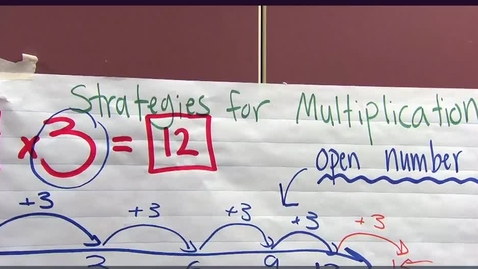 Strategies for Multiplication
×3 = 12
open number
+3 +3 +3 +3 +3
3 6 9 12